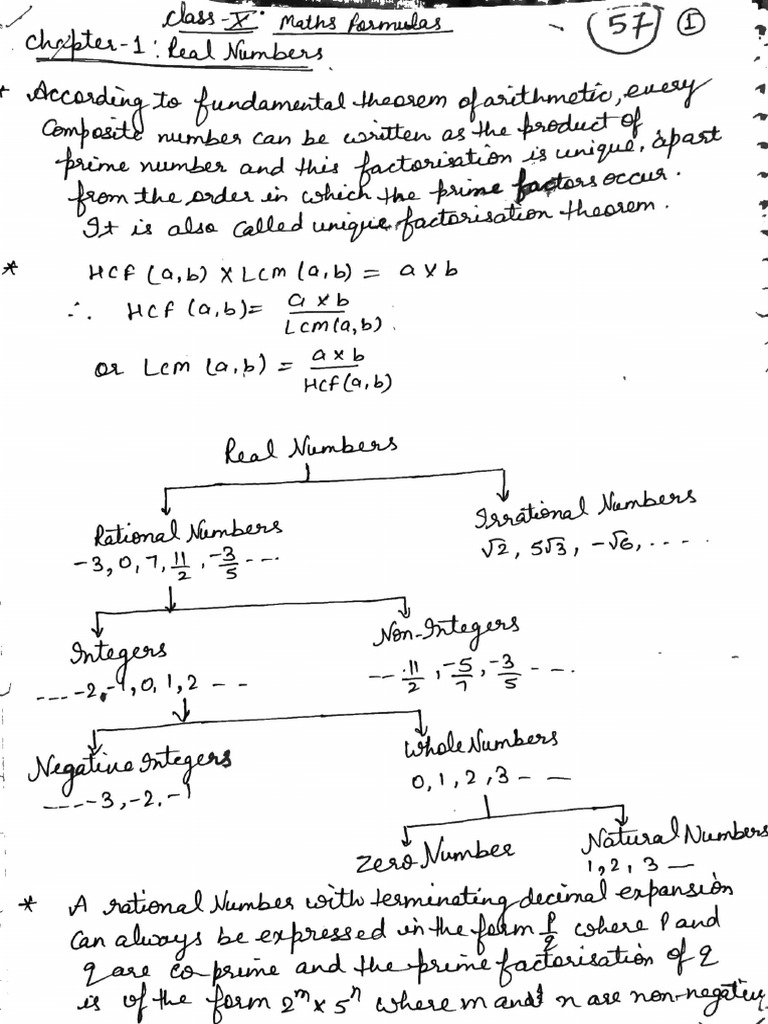 Class-X : Maths Formulas
57 1
Chapter-1 : Real Numbers
* According to fundamental theorem of arithmetic, every
Composite number can be written as the product of
prime number and this factorisation is unique, apart
from the order in which the prime factors occur.
It is also called unique factorisation theorem.
* HCF (a,b) × Lcm (a,b) = a × b
∴ HCF (a,b) = a × b / Lcm(a,b)
or Lcm (a,b) = a × b / HCF(a,b)
Real Numbers
Rational Numbers Irrational Numbers
-3, 0, 7, 11/2, -3/5 --- √2, 5√3, -√6, ....
Integers Non-Integers
---- -2, -1, 0, 1, 2 -- -- 11/2, -5/7, -3/5 ---
Negative Integers Whole Numbers
---- -3, -2, -1 0, 1, 2, 3 - -
Zero Number Natural Numbers
1, 2, 3 —
* A rational Number with terminating decimal expansion
can always be expressed in the form p/q where P and
q are co prime and the prime factorisation of q
is of the form 2^m × 5^n where m and n are non-negative